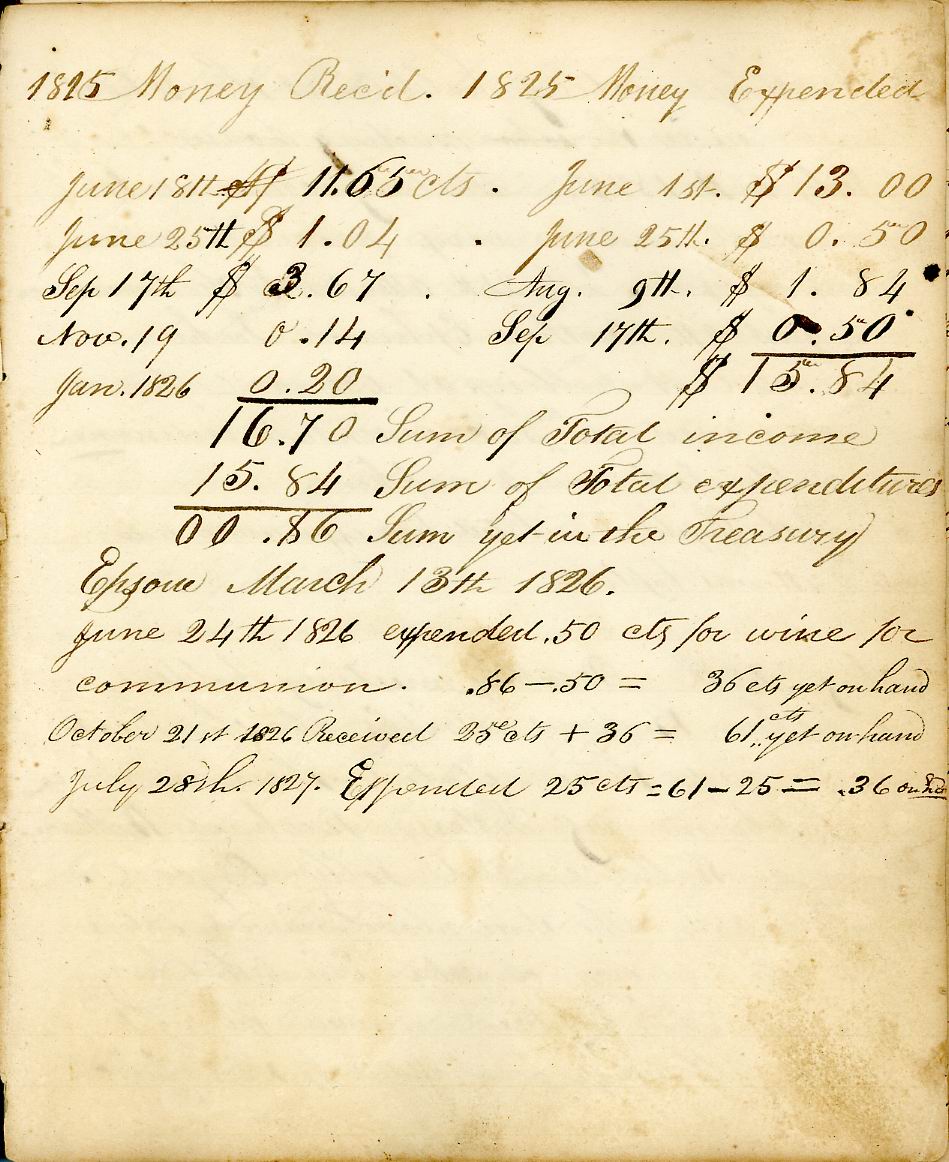 1825 Money Rec'd. 1825 Money Expended
June 18th $ 11.65 cts. June 1st. $ 13.00
June 25th $ 1.04 . June 25th. $ 0.50
Sep 17th $ 3.67 . Aug. 9th. $ 1.84
Nov. 19 0.14 Sep 17th. $ 0.50
Jan. 1826 0.20 $ 15.84
16.70 Sum of Total income
15.84 Sum of Total expenditures
00.86 Sum yet in the Treasury
Epsom March 13th 1826.
June 24th 1826 expended .50 cts for wine for
communion. .86 — .50 = 36 cts yet on hand
October 21st 1826 Received 25 cts + 36 = 61 cts yet on hand
July 28th. 1827. Expended 25 cts = 61 – 25 = .36 on